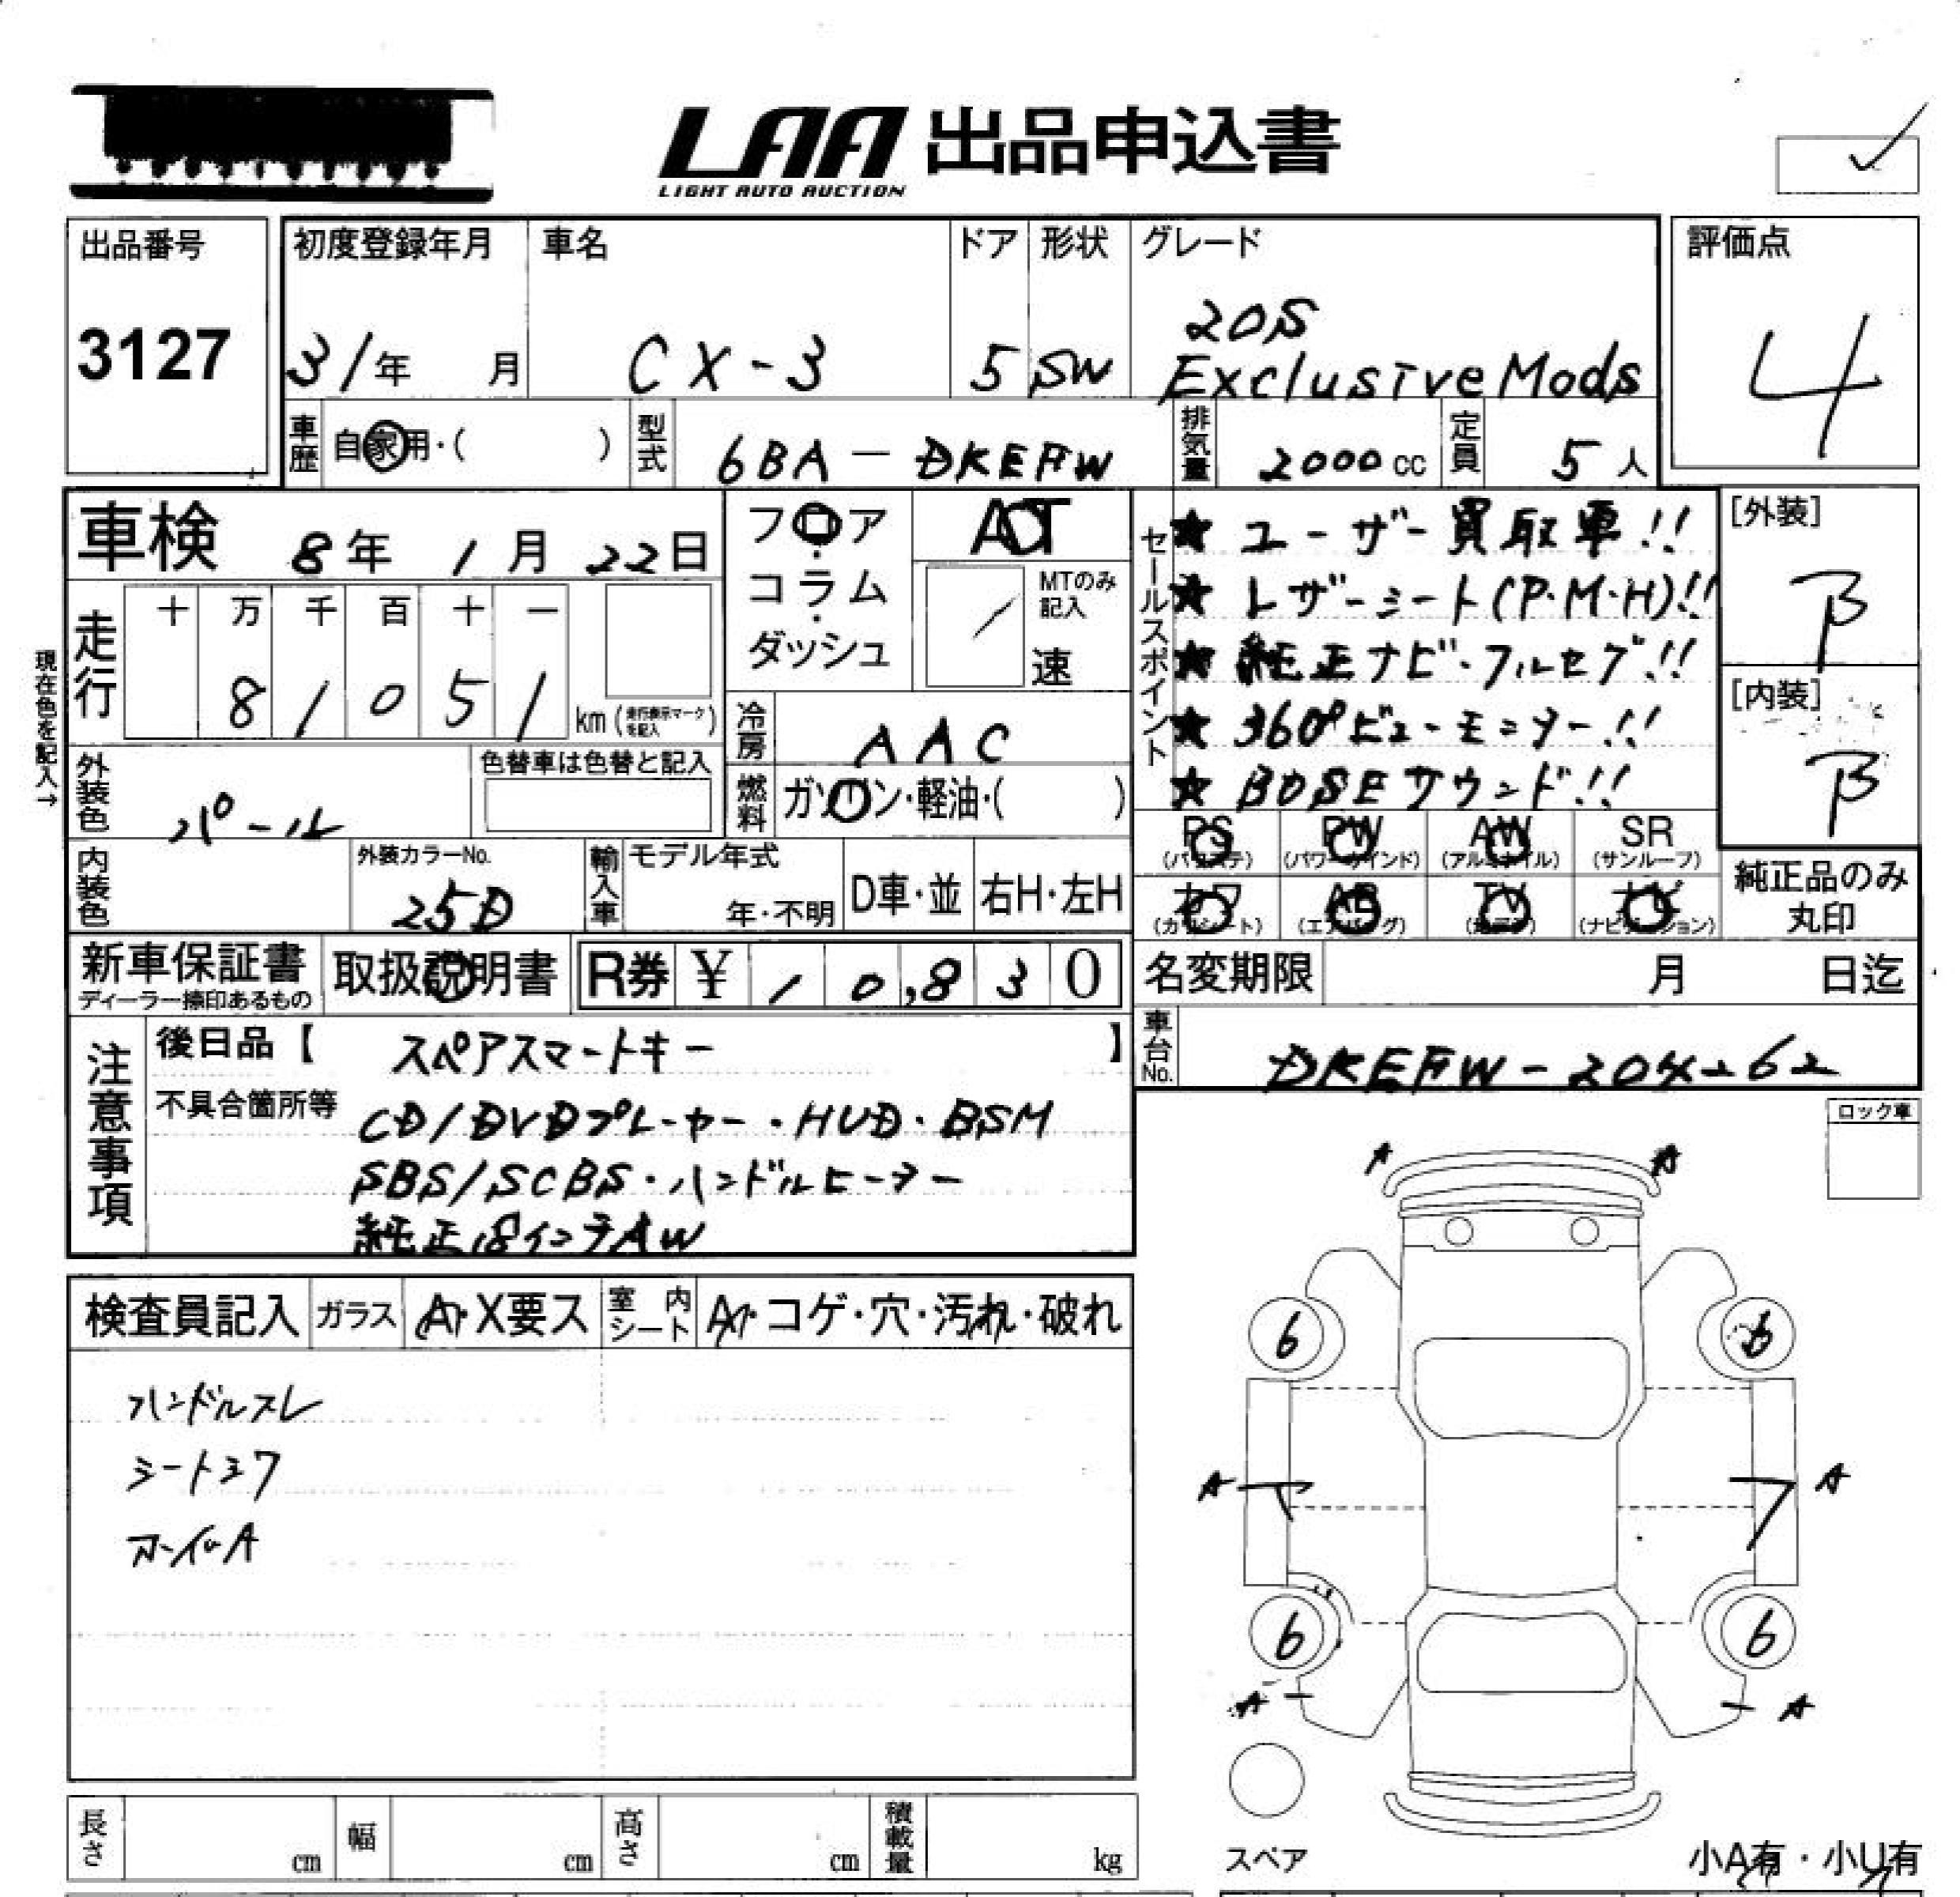 LAA 出品申込書
LIGHT AUTO AUCTION
出品番号
3127
初度登録年月
31年 月
車名
CX-3
ドア
5
形状
SW
グレード
20S
Exclusive Mods
評価点
4
車歴 自家用・( )
型式 6BA-DKEFW
排気量 2000cc
定員 5人
車検 8年 1月 22日
フロア・コラム・ダッシュ
AT
MTのみ記入
速
走行 十 万 千 百 十 一
8 1 0 5 1 km (走行表示マークを記入)
現在色を記入→
冷房 AAC
外装色 パール
色替車は色替と記入
燃料 ガソリン・軽油・( )
内装色
外装カラーNo.
25D
輸入車 モデル年式
年・不明
D車・並
右H・左H
セールスポイント
★ ユーザー買取車!!
★ レザーシート(P・M・H)!!
★ 純正ナビ・フルセグ!!
★ 360°ビューモニター!!
★ BOSEサウンド!!
[外装]
B
[内装]
B
PS (パワステ)
PW (パワーウインド)
AW (アルミホイル)
SR (サンルーフ)
カワ (カワシート)
AB (エアバッグ)
TV (地デジ)
ナビ (ナビゲーション)
純正品のみ丸印
新車保証書
ディーラー捺印あるもの
取扱説明書
R券 ¥ 1 0,8 3 0
名変期限 月 日迄
車台No.
注意事項
後日品【 スペアスマートキー 】
不具合箇所等
CD/DVDプレーヤー・HUD・BSM
SBS/SCBS・ハンドルヒーター
純正18インチAW
ロック車
検査員記入
ガラス A・X要ス
室内シート A・コゲ・穴・汚れ・破れ
ハンドルスレ
シートシワ
ホイルA
A A
6 6
A A
6 6
A A
スペア
小A有・小U有
長さ cm
幅 cm
高さ cm
積載量 kg